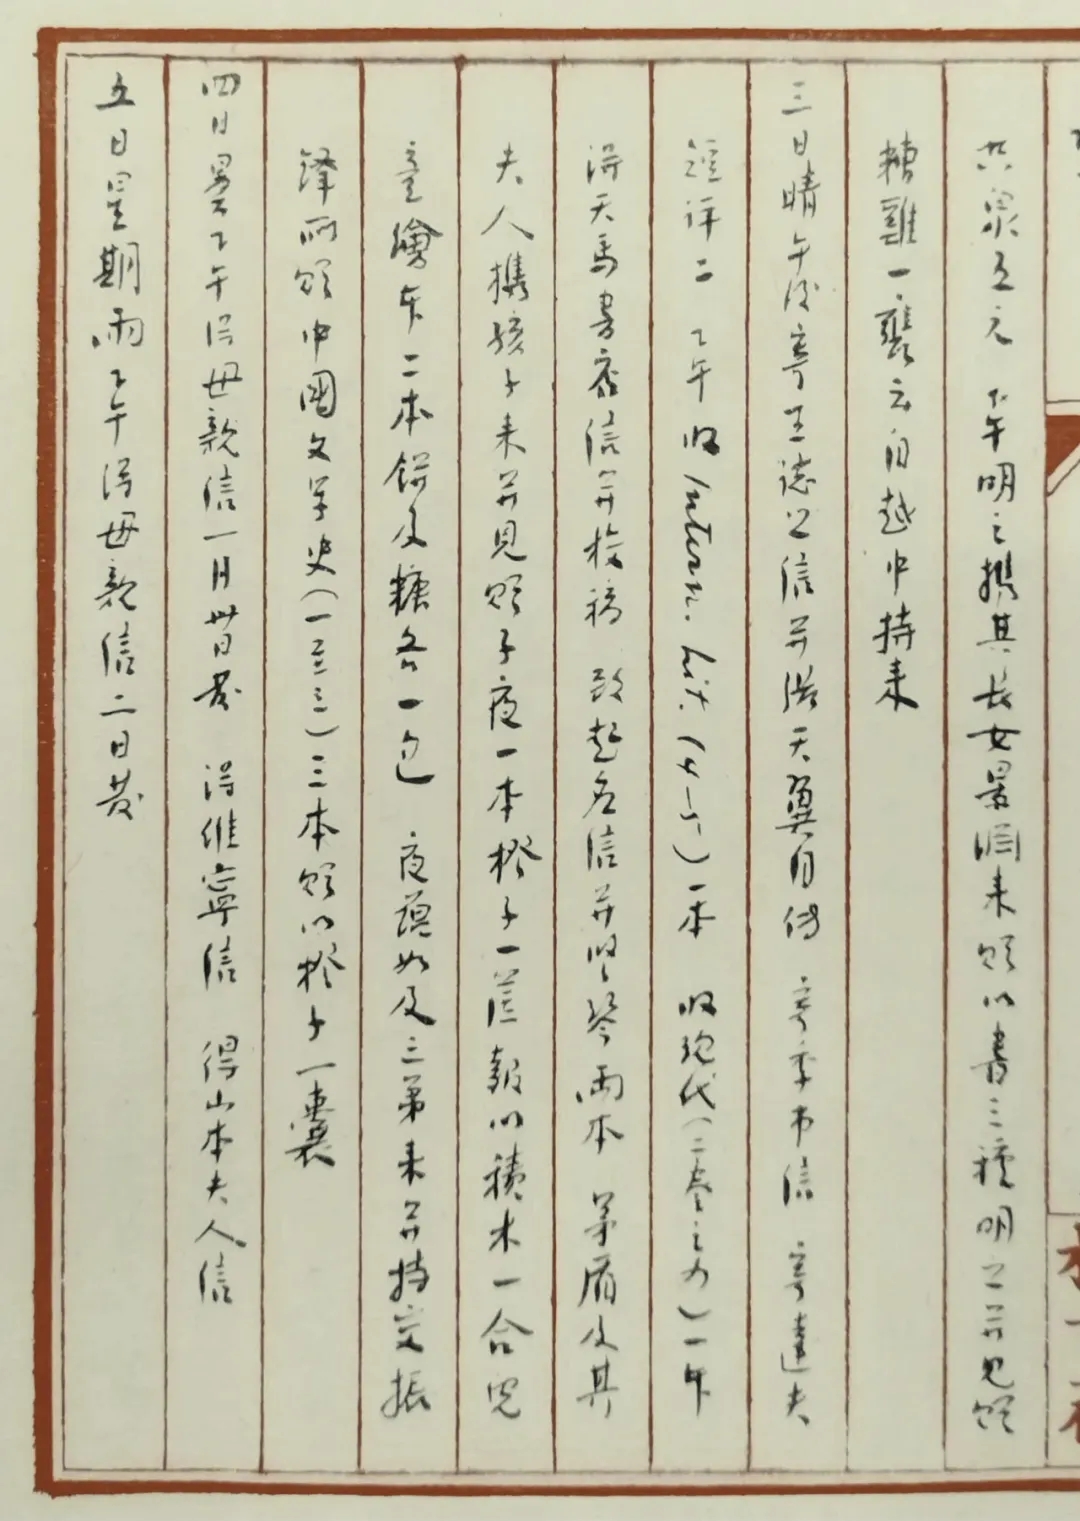 共泉五元 下午明之攜其長女景淵來贈以書三種明之并見贈
糟雞一甕云自越中持來
三日晴午後寄王志之信并張天翼自傳 寄季市信 寄達夫
短評二 下午收Intern. Lit. (4—5)一本 收現代(二卷之四)一本
得天馬書店信并校稿 致起應信并豎琴兩本 茅盾及其
夫人攜孩子來并見贈子夜一本橙子一筐報以積木一合兒
童繪本二本餅及糖各一包 夜蘊如及三弟來并持交振
鐸所贈中國文學史(一至三)三本贈以橙子一囊
四日曇下午得母親信一月卅日發 得維寧信 得山本夫人信
五日星期雨下午得母親信二日發